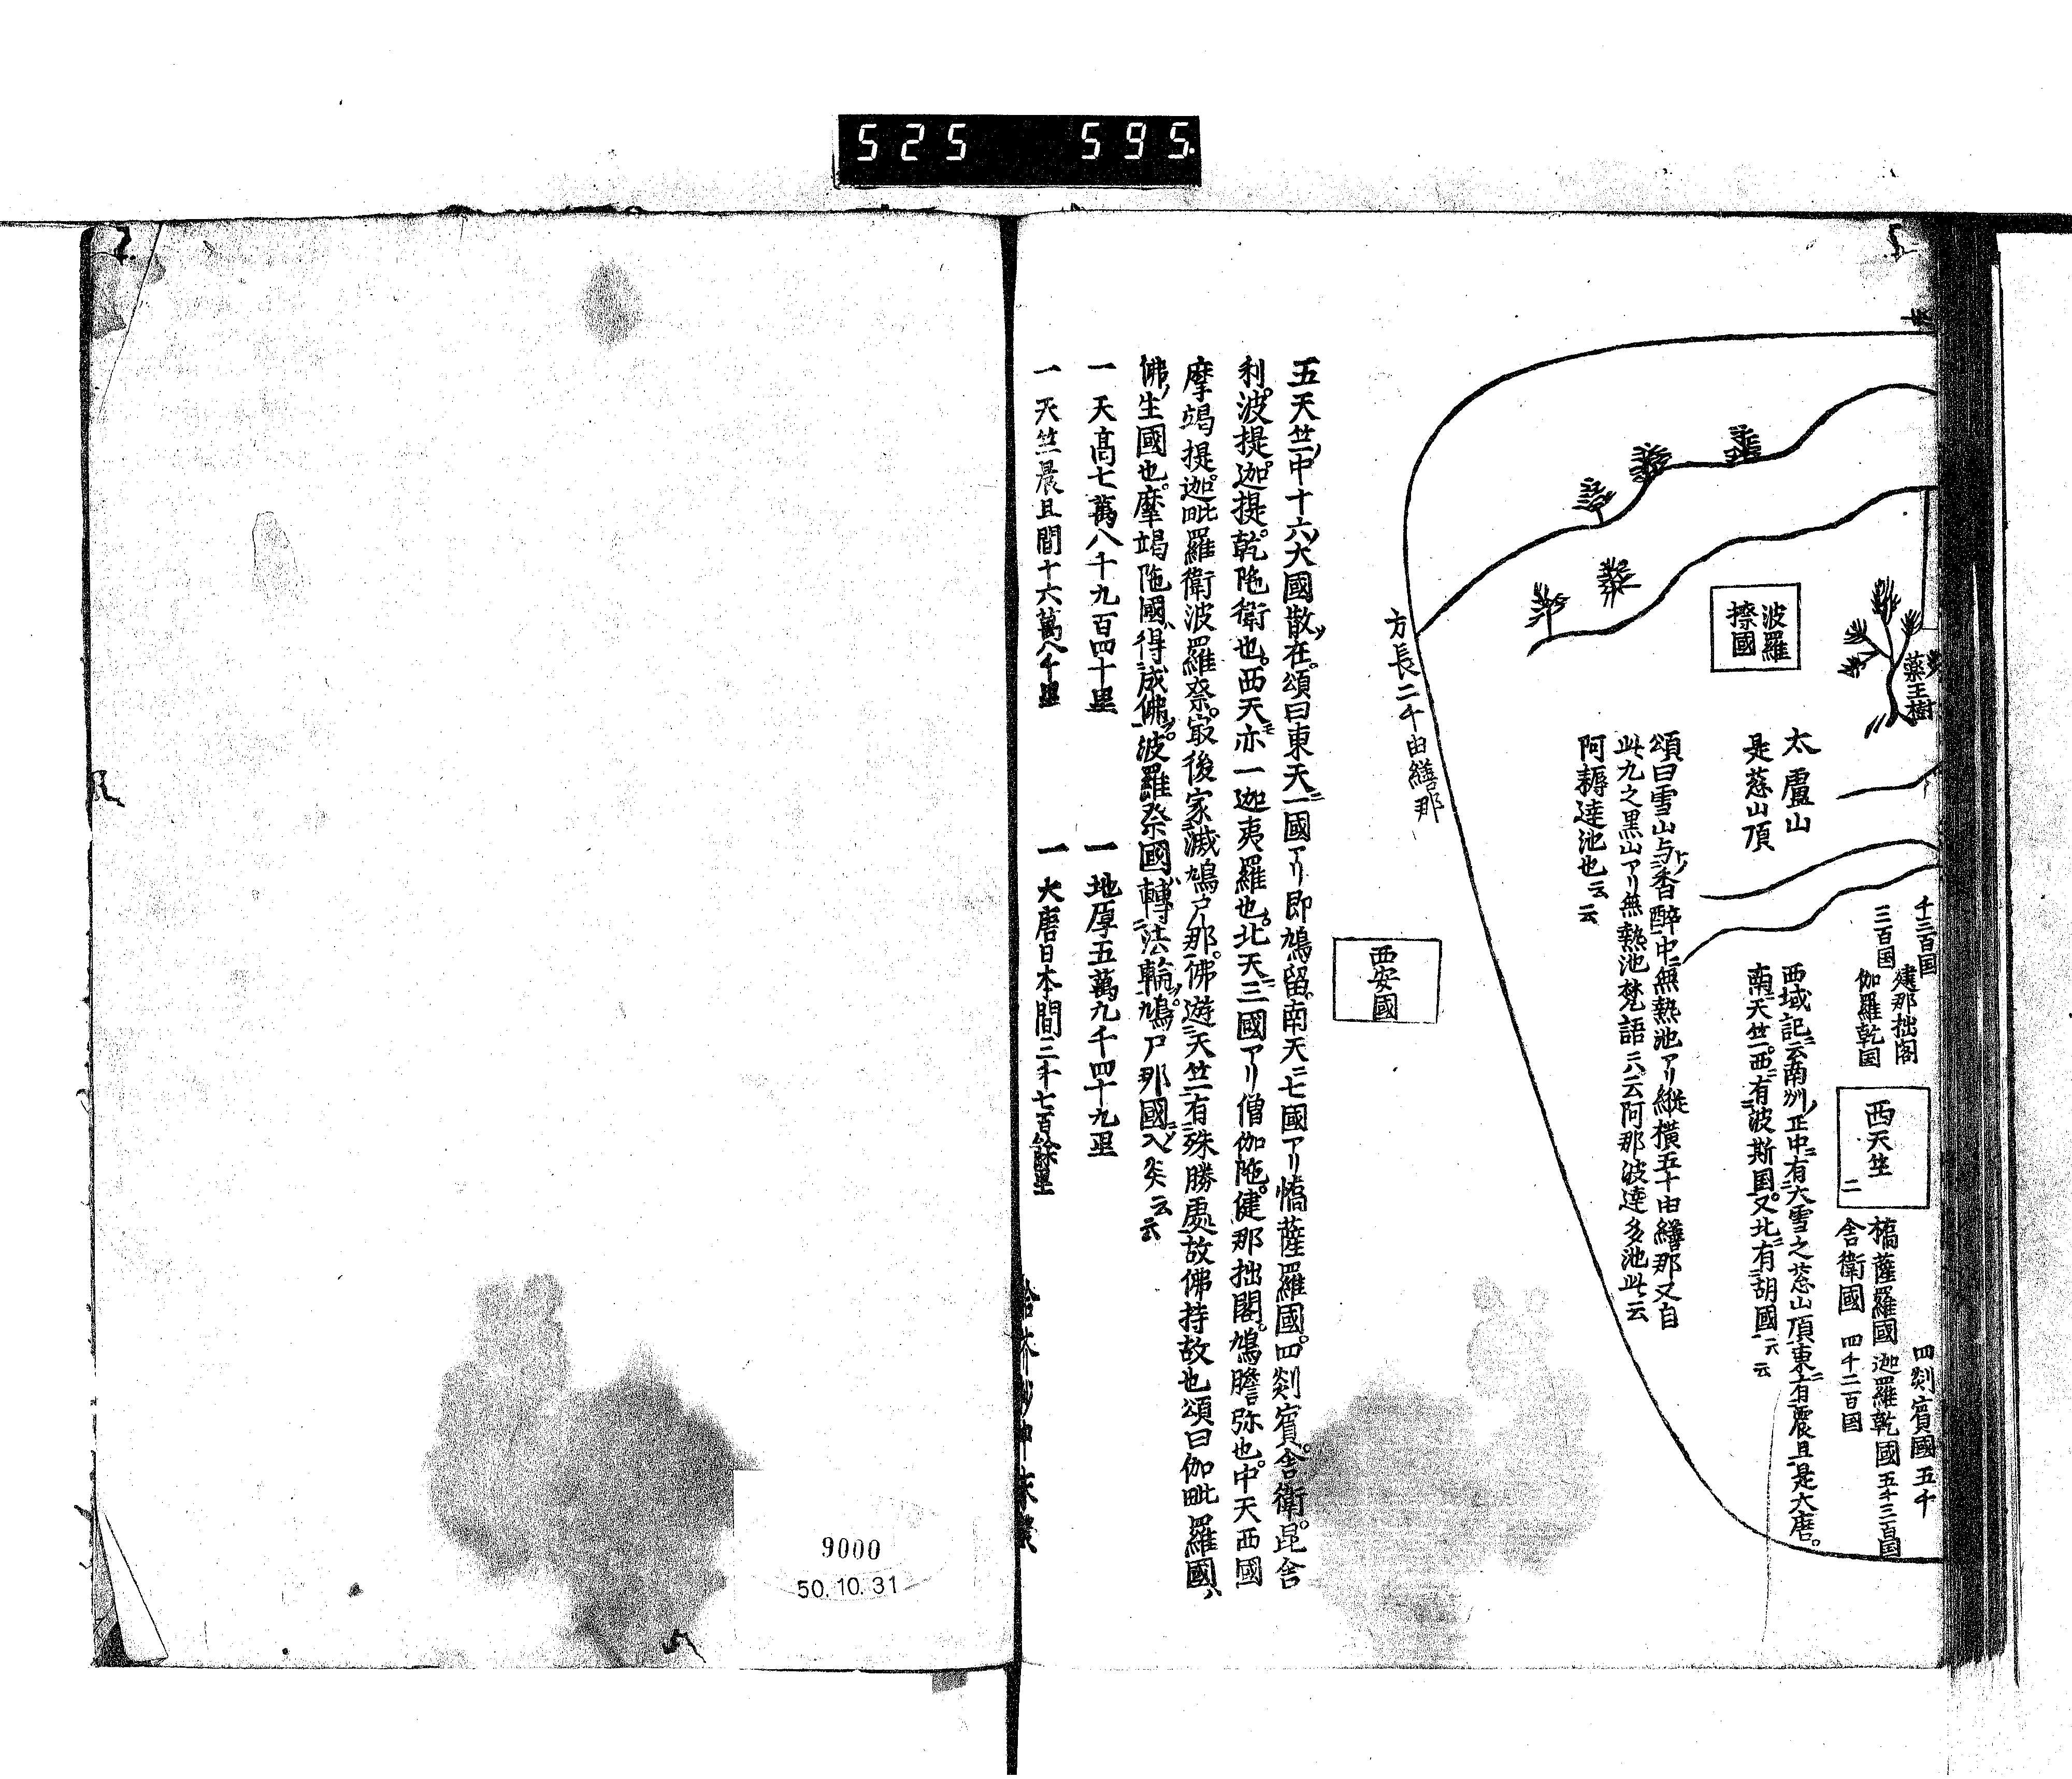 525 595.
藥王樹
波羅
擦國
太盧山
是葱山頂
千三百国
三百国
建那拙閣
伽羅乾国
西天竺
二
四剡賓國五千
橋薩羅國迦羅乾國五千三百国
舎衛國 四千二百国
西域記ニ云南洲ノ正中ニ有大雪之葱山頂東ニ有震旦是大唐。
南天竺。西ニ有波斯国。又北ニ有胡國云云
頌曰雪山与香醉中無熱池アリ縱横五十由繕那又自
此九之黒山アリ無熱池梵語ニハ云阿那波達多池此云
阿耨達池也云云
方長二千由繕那
西安國
五天竺ノ中十六ノ大國散在。頌曰東天ニ一國アリ即鳩留。南天ニ七國アリ憍薩羅國。四剡賓。舎衛。昆舎
利。波提。迦提。乾陁衛也。西天亦一迦夷羅也。北天ニ三國アリ僧伽陁。健那拙閣。鳩膽弥也。中天西國
摩竭提。迦毗羅衛波羅奈。最後家滅鳩尸那。佛遊天竺ニ有殊勝處故佛持故也頌曰伽毗羅國ハ
佛ノ生國也。摩竭陁國ハ得成佛。波羅奈國ハ轉法輪。鳩尸那國ニ入矣云云
一天高七萬八千九百四十里
一地厚五萬九千四十九里
一天竺晨旦間十六萬八千里
一大唐日本間三千七百餘里
9000
50.10.31